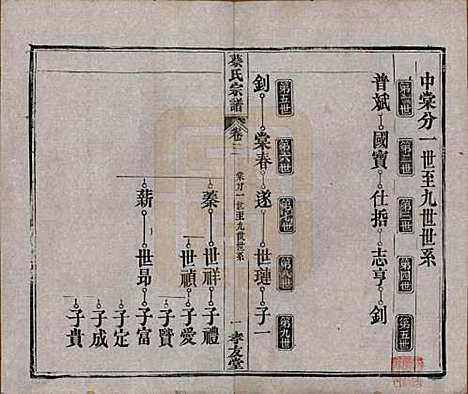 中棠分一世至九世世系
第一世 第二世 第三世 第四世 第五世
普斌 國寶 仕捂 志亨 釗
第五世 第六世 第七世 第八世 第九世
釗 棠春 遂 世璉 子一
蔡氏宗譜 卷二 棠分一世至九世世系 一 孝友堂
蓁 世祥 子禮
世禎 子愛
子贊
薪 世昂 子富
子定
子成
子貴